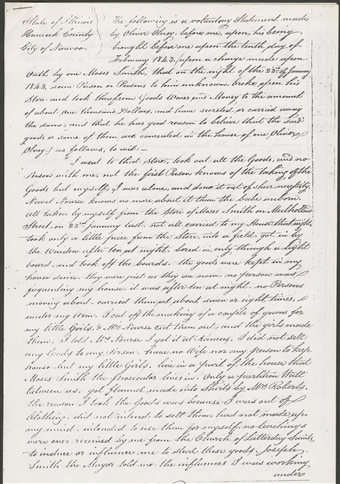 State of Illinois
Hancock County
City of Nauvoo
The following is a voluntary Statement made
by Oliver Olney, before me, upon his being
brought before me upon the tenth day of
February 1843, upon a charge made upon
Oath by one Moses Smith, that on the night of the 23rd of January
1843, some Person or Persons to him unknown broke open his
Store and took therefrom Goods Wares and Money to the amount
of about one thousand Dollars, and have secreted, or carried away
the same, and that he has good reason to believe that the said
goods or some of them are concealed in the house of one Oliver
Olney, as follows, to wit:—
"I went to the store, took out all the Goods, and no
Person with me, not the first Person knows of the taking of the
Goods but myself, I was alone, and done it out of sheer necessity.
Newel Nourse knows no more about it than the babe unborn
all taken by myself from the store of Moses Smith on Mulholland
Street, on 23rd January last. not all carried to my House that night,
took only a little piece from the store, into a field, got in by
the window into the at night, bored in only through a light
board, and took off the boards. the goods were kept in my
house since. They were just as they are now. no persons was
frequenting my house. it was after ten at night no Persons
moving about. carried them at about seven or eight times,
under my arm. I cut off the making of a couple of gowns for
my little Girls, & Mrs Nourse cut them out, and the girls made
them, I told Mrs Nourse I got it at Ramus. I did not sell
any Goods to any Person, have no Wife nor any person to keep
house but my little Girls, live in a part of the house that
Moses Smith the prosecutor lives in. Only a partition Wall
between us. got flannel made into shirts by Mrs Roberts.
the reason I took the Goods was because I was out of
Clothing did not intend to sell them had not made up
my mind. intended to use them for myself. no teachings
were ever received by me from the Church of Latter day Saints,
to induce or influence me to steal these goods. Joseph
Smith the Mayor told me the influences I was working
under